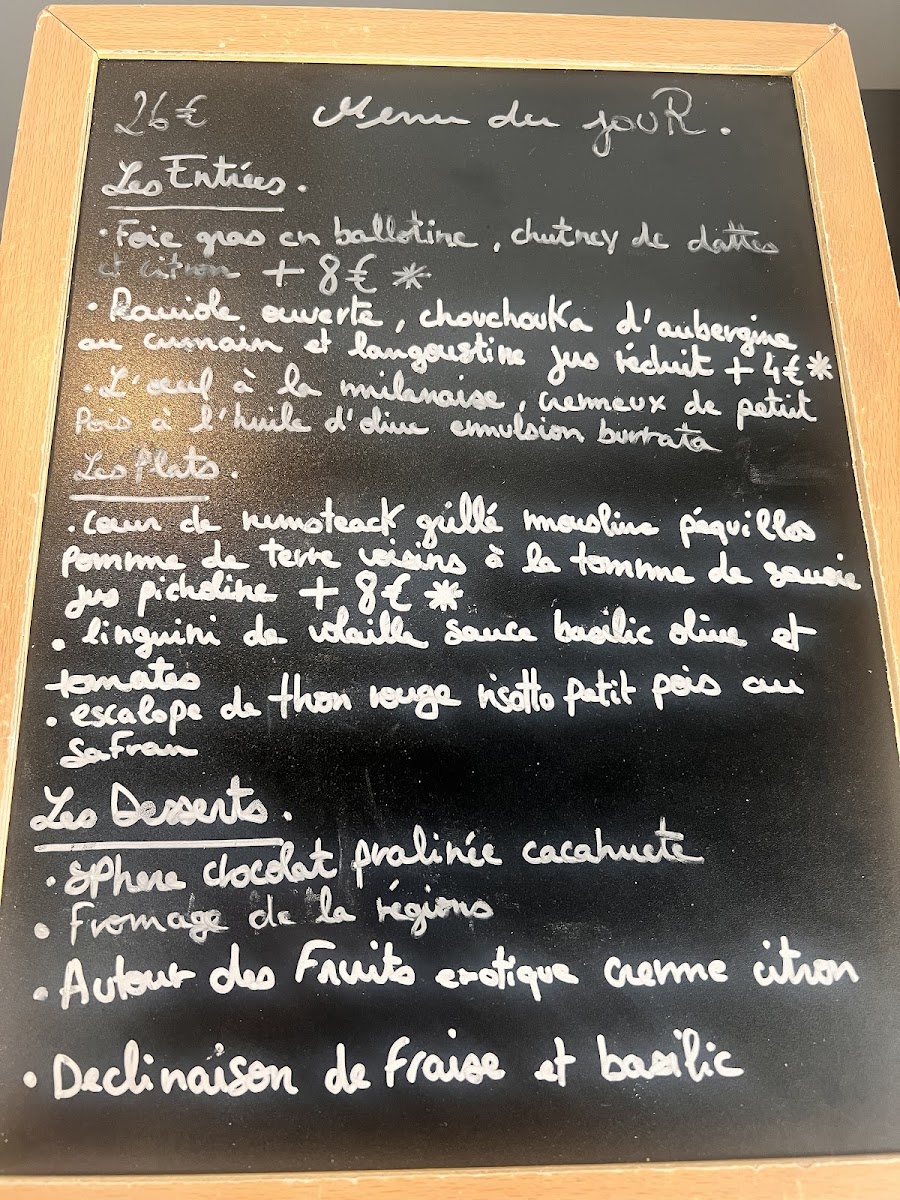 26€ Menu du jouR.
Les Entrées.
· Foie gras en ballotine, chutney de dattes
et citron + 8€ *
· Raviole ouverte, chouchouka d'aubergine
au cumain et langoustine jus réduit + 4€ *
· L'œuf à la milanaise, cremeux de petit
Pois à l'huile d'olive emulsion burrata
Les Plats.
· Cœur de rumsteack grillé mousline péquillos
pomme de terre voisins à la tomme de savoie
jus picholine + 8€ *
· linguini de volaille sauce basilic olive et
tomates
· escalope de thon rouge risotto petit pois au
SaFran
Les Desserts.
· SPhere chocolat pralinée cacahuete
· Fromage de la régions
· Autour des Fruits exotique creme citron
· Declinaison de fraise et basilic